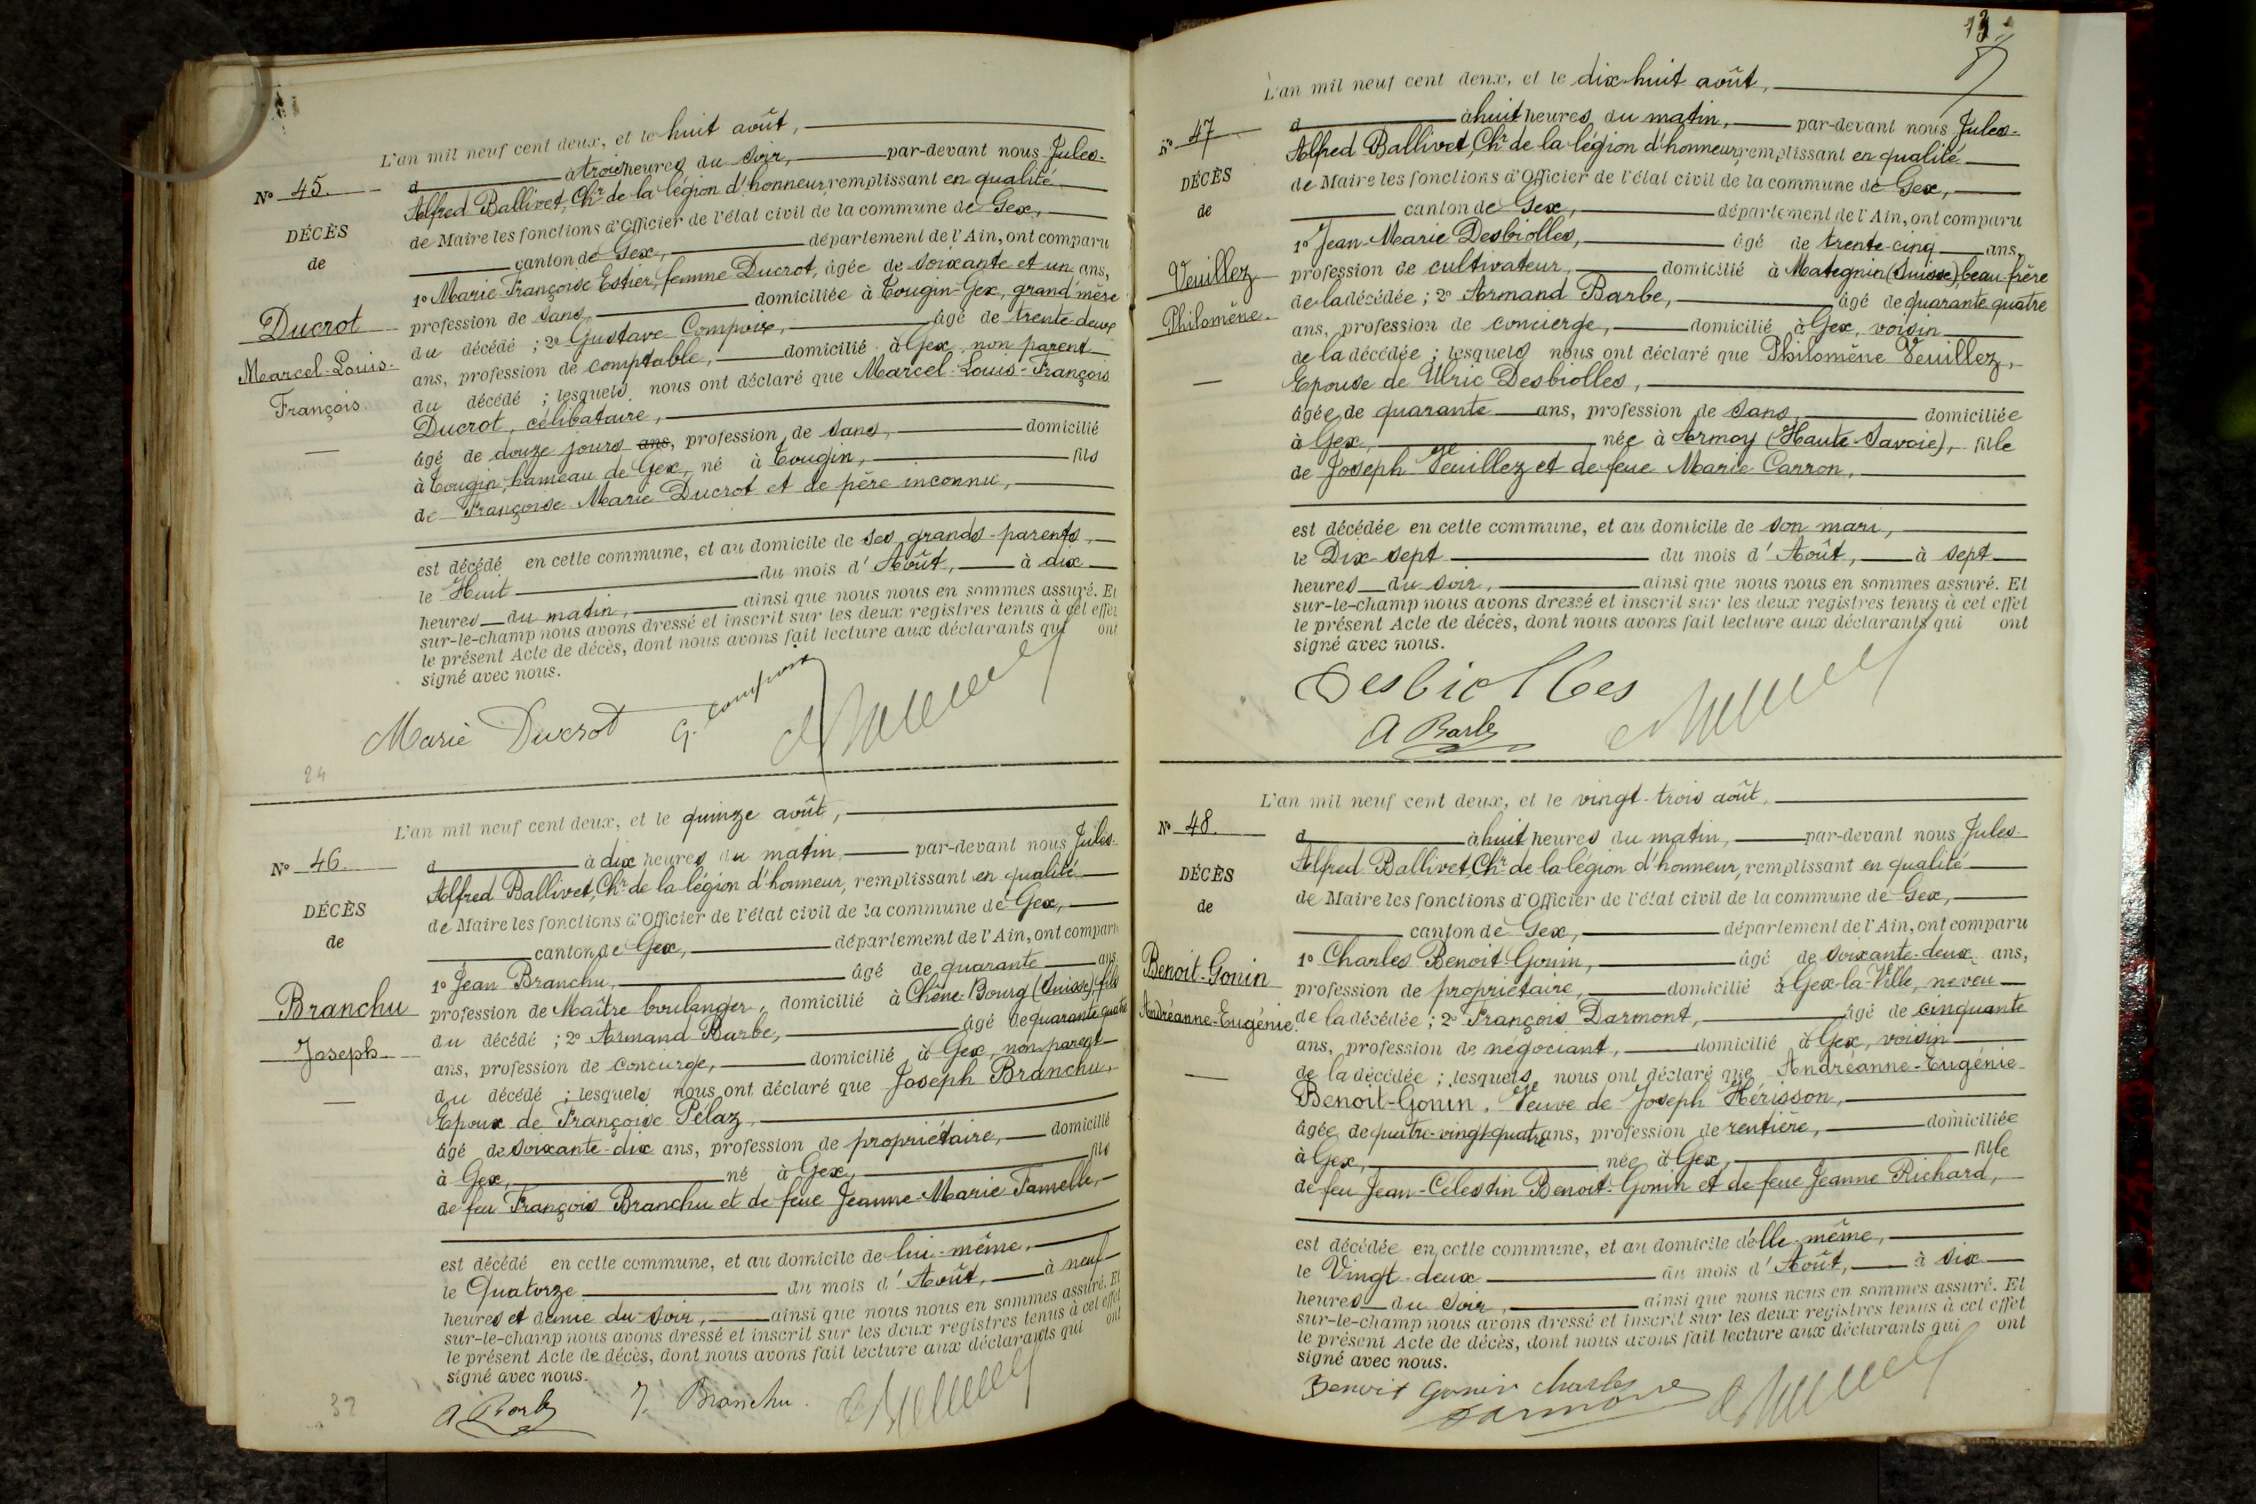 L'an mil neuf cent deux, et le huit août,
N° 45.
à trois heures du soir, par-devant nous Jules-
Alfred Ballivet, Chr de la légion d'honneur, remplissant en qualité
DÉCÈS
de Maire les fonctions d'Officier de l'état civil de la commune de Gex,
de
canton de Gex, département de l'Ain, ont comparu
1° Marie Françoise Estier, femme Ducrot, âgée de soixante et un ans,
Ducrot
profession de sans, domiciliée à Tougin-Gex, grand'mère
du décédé ; 2° Gustave Compoix, âgé de trente-deux
Marcel-Louis-
ans, profession de comptable, domicilié à Gex, non parent
François
du décédé ; lesquels nous ont déclaré que Marcel-Louis-François
Ducrot, célibataire,
âgé de douze jours ans, profession de sans, domicilié
à Tougin, hameau de Gex, né à Tougin, fils
de Françoise Marie Ducrot et de père inconnu,
est décédé en cette commune, et au domicile de ses grands-parents,
le Huit du mois d'Août, à dix
heures du matin, ainsi que nous nous en sommes assuré. Et
sur-le-champ nous avons dressé et inscrit sur les deux registres tenus à cet effet
le présent Acte de décès, dont nous avons fait lecture aux déclarants qui ont
signé avec nous.
Marie Ducrot G. Compoix
24
L'an mil neuf cent deux, et le quinze août,
N° 46.
à dix heures du matin, par-devant nous Jules-
Alfred Ballivet, Chr de la légion d'honneur, remplissant en qualité
DÉCÈS
de Maire les fonctions d'Officier de l'état civil de la commune de Gex,
de
canton de Gex, département de l'Ain, ont comparu
1° Jean Branchu, âgé de quarante ans,
Branchu
profession de Maître boulanger, domicilié à Chêne-Bourg (Suisse), fils
Joseph
du décédé ; 2° Armand Barbe, âgé de quarante quatre
ans, profession de concierge, domicilié à Gex, non parent
du décédé ; lesquels nous ont déclaré que Joseph Branchu,
Epoux de Françoise Pelaz,
âgé de soixante-dix ans, profession de propriétaire, domicilié
à Gex, né à Gex, fils
de feu François Branchu et de feue Jeanne-Marie Tamelle,
est décédé en cette commune, et au domicile de lui-même,
le Quatorze du mois d'Août, à neuf
heures et demie du soir, ainsi que nous nous en sommes assuré. Et
sur-le-champ nous avons dressé et inscrit sur les deux registres tenus à cet effet
le présent Acte de décès, dont nous avons fait lecture aux déclarants qui ont
signé avec nous.
A Barbe J. Branchu
32
L'an mil neuf cent deux, et le dix-huit août,
N° 47
à huit heures du matin, par-devant nous Jules-
Alfred Ballivet, Chr de la légion d'honneur, remplissant en qualité
DÉCÈS
de Maire les fonctions d'Officier de l'état civil de la commune de Gex,
de
canton de Gex, département de l'Ain, ont comparu
1° Jean-Marie Desbiolles, âgé de trente-cinq ans,
Veuillez
profession de cultivateur, domicilié à Mategnin (Suisse), beau-frère
Philomène.
de la décédée ; 2° Armand Barbe, âgé de quarante quatre
ans, profession de concierge, domicilié à Gex, voisin
de la décédée ; lesquels nous ont déclaré que Philomène Veuillez,
Epouse de Ulric Desbiolles,
âgée de quarante ans, profession de sans, domiciliée
à Gex, née à Armoy (Haute-Savoie), fille
de Joseph Veuillez et de feue Marie Carron,
est décédée en cette commune, et au domicile de son mari,
le Dix sept du mois d'Août, à sept
heures du soir, ainsi que nous nous en sommes assuré. Et
sur-le-champ nous avons dressé et inscrit sur les deux registres tenus à cet effet
le présent Acte de décès, dont nous avons fait lecture aux déclarants qui ont
signé avec nous.
Desbiolles
A Barbe
L'an mil neuf cent deux, et le vingt-trois août,
N° 48.
à huit heures du matin, par-devant nous Jules-
Alfred Ballivet, Chr de la légion d'honneur, remplissant en qualité
DÉCÈS
de Maire les fonctions d'Officier de l'état civil de la commune de Gex,
de
canton de Gex, département de l'Ain, ont comparu
1° Charles Benoit-Gonin, âgé de soixante-deux ans,
Benoit-Gonin
profession de propriétaire, domicilié à Gex-la-Ville, neveu
Andréanne-Eugénie.
de la décédée ; 2° François Darmont, âgé de cinquante
ans, profession de négociant, domicilié à Gex, voisin
de la décédée ; lesquels nous ont déclaré que Andréanne-Eugénie
Benoit-Gonin, Veuve de Joseph Hérisson,
âgée de quatre-vingt-quatre ans, profession de rentière, domiciliée
à Gex, née à Gex, fille
de feu Jean-Célestin Benoit-Gonin et de feue Jeanne Richard,
est décédée en cette commune, et au domicile d'elle-même,
le Vingt-deux du mois d'Août, à six
heures du soir, ainsi que nous nous en sommes assuré. Et
sur-le-champ nous avons dressé et inscrit sur les deux registres tenus à cet effet
le présent Acte de décès, dont nous avons fait lecture aux déclarants qui ont
signé avec nous.
Benoit Gonin Charles
Darmont